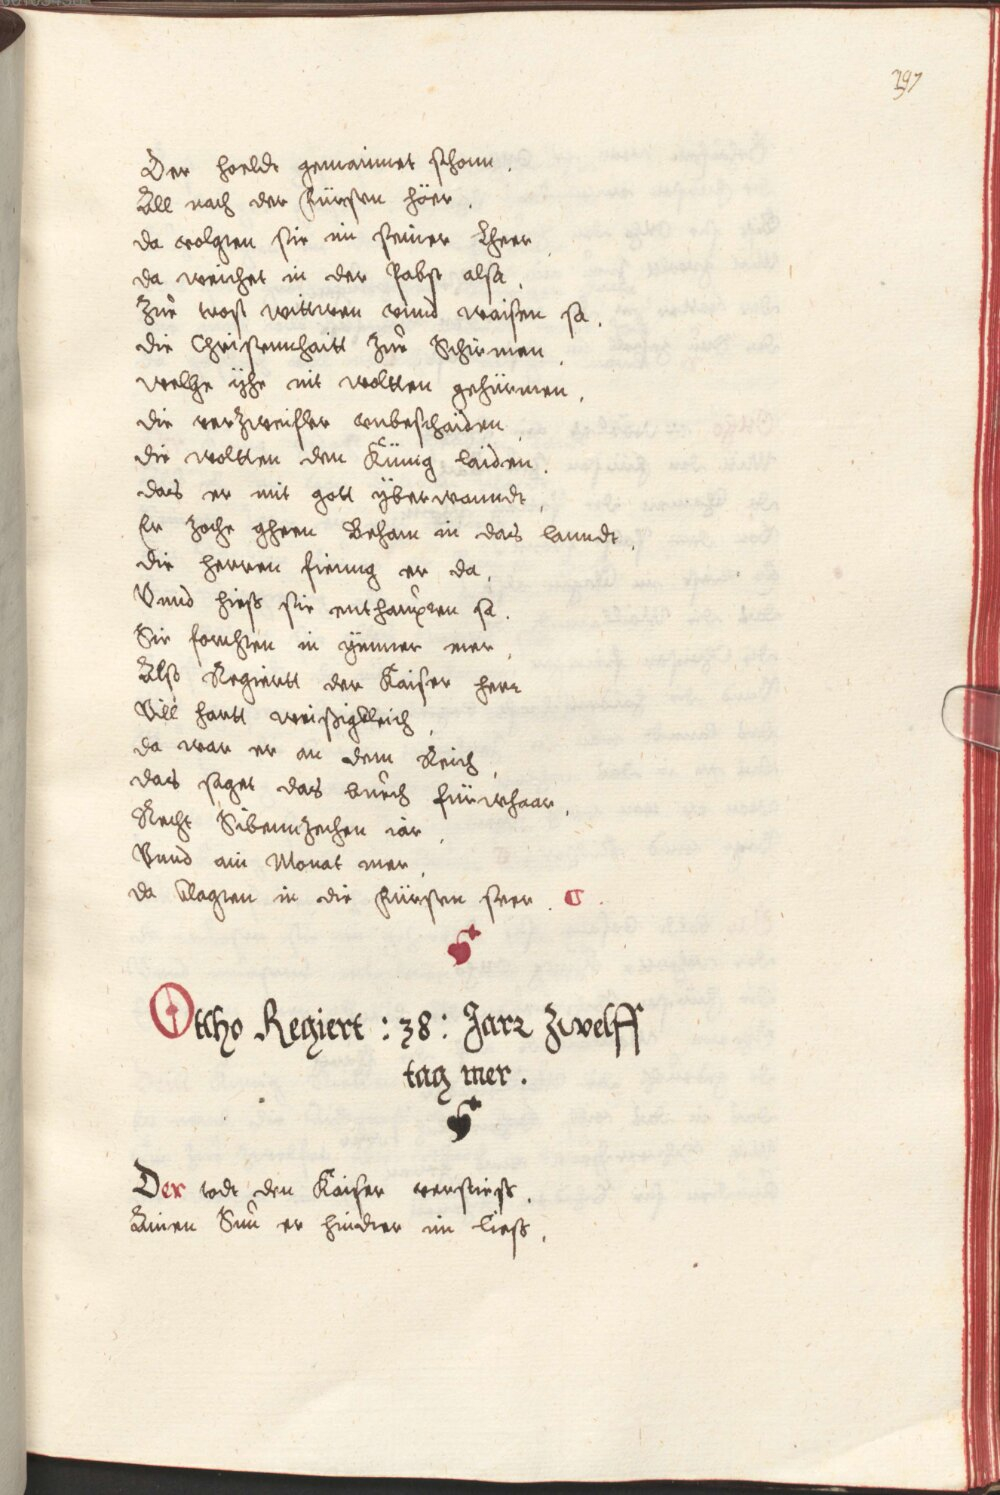 197
Der hoeldt gemainnet schonn.
All nach der Fürsten höer.
da volgten sie in seiner Lheer.
da weichet in der Pabst alsa.
Zue trost wittwen vnnd waisen sa.
die Christennhaitt Zue Schirmen.
welche yhe nit woltten gehürmen.
die verzweifler vnbeschaiden.
die woltten den Künig laiden.
das er mit gott yberwanndt.
Er zoche gheen Beham in das lanndt.
die herren fienng er da.
Vnnd hieß sie enthaupten sa.
Sie forchten in ymmer mer.
Alß Regiertt der Kaiser herr
Vill hartt weißigkleich.
da war er an dem Reich.
das saget das buech fürwhaar.
Recht Sibennzechen iar.
Vnnd ain Monat mer.
da klagten in die Fürsten seer.
Ottho Regiert : 38 : Jarr zwelff
tag mer.
Der todt den Kaiser verstiess.
Ainen Sun er hinder im liess.